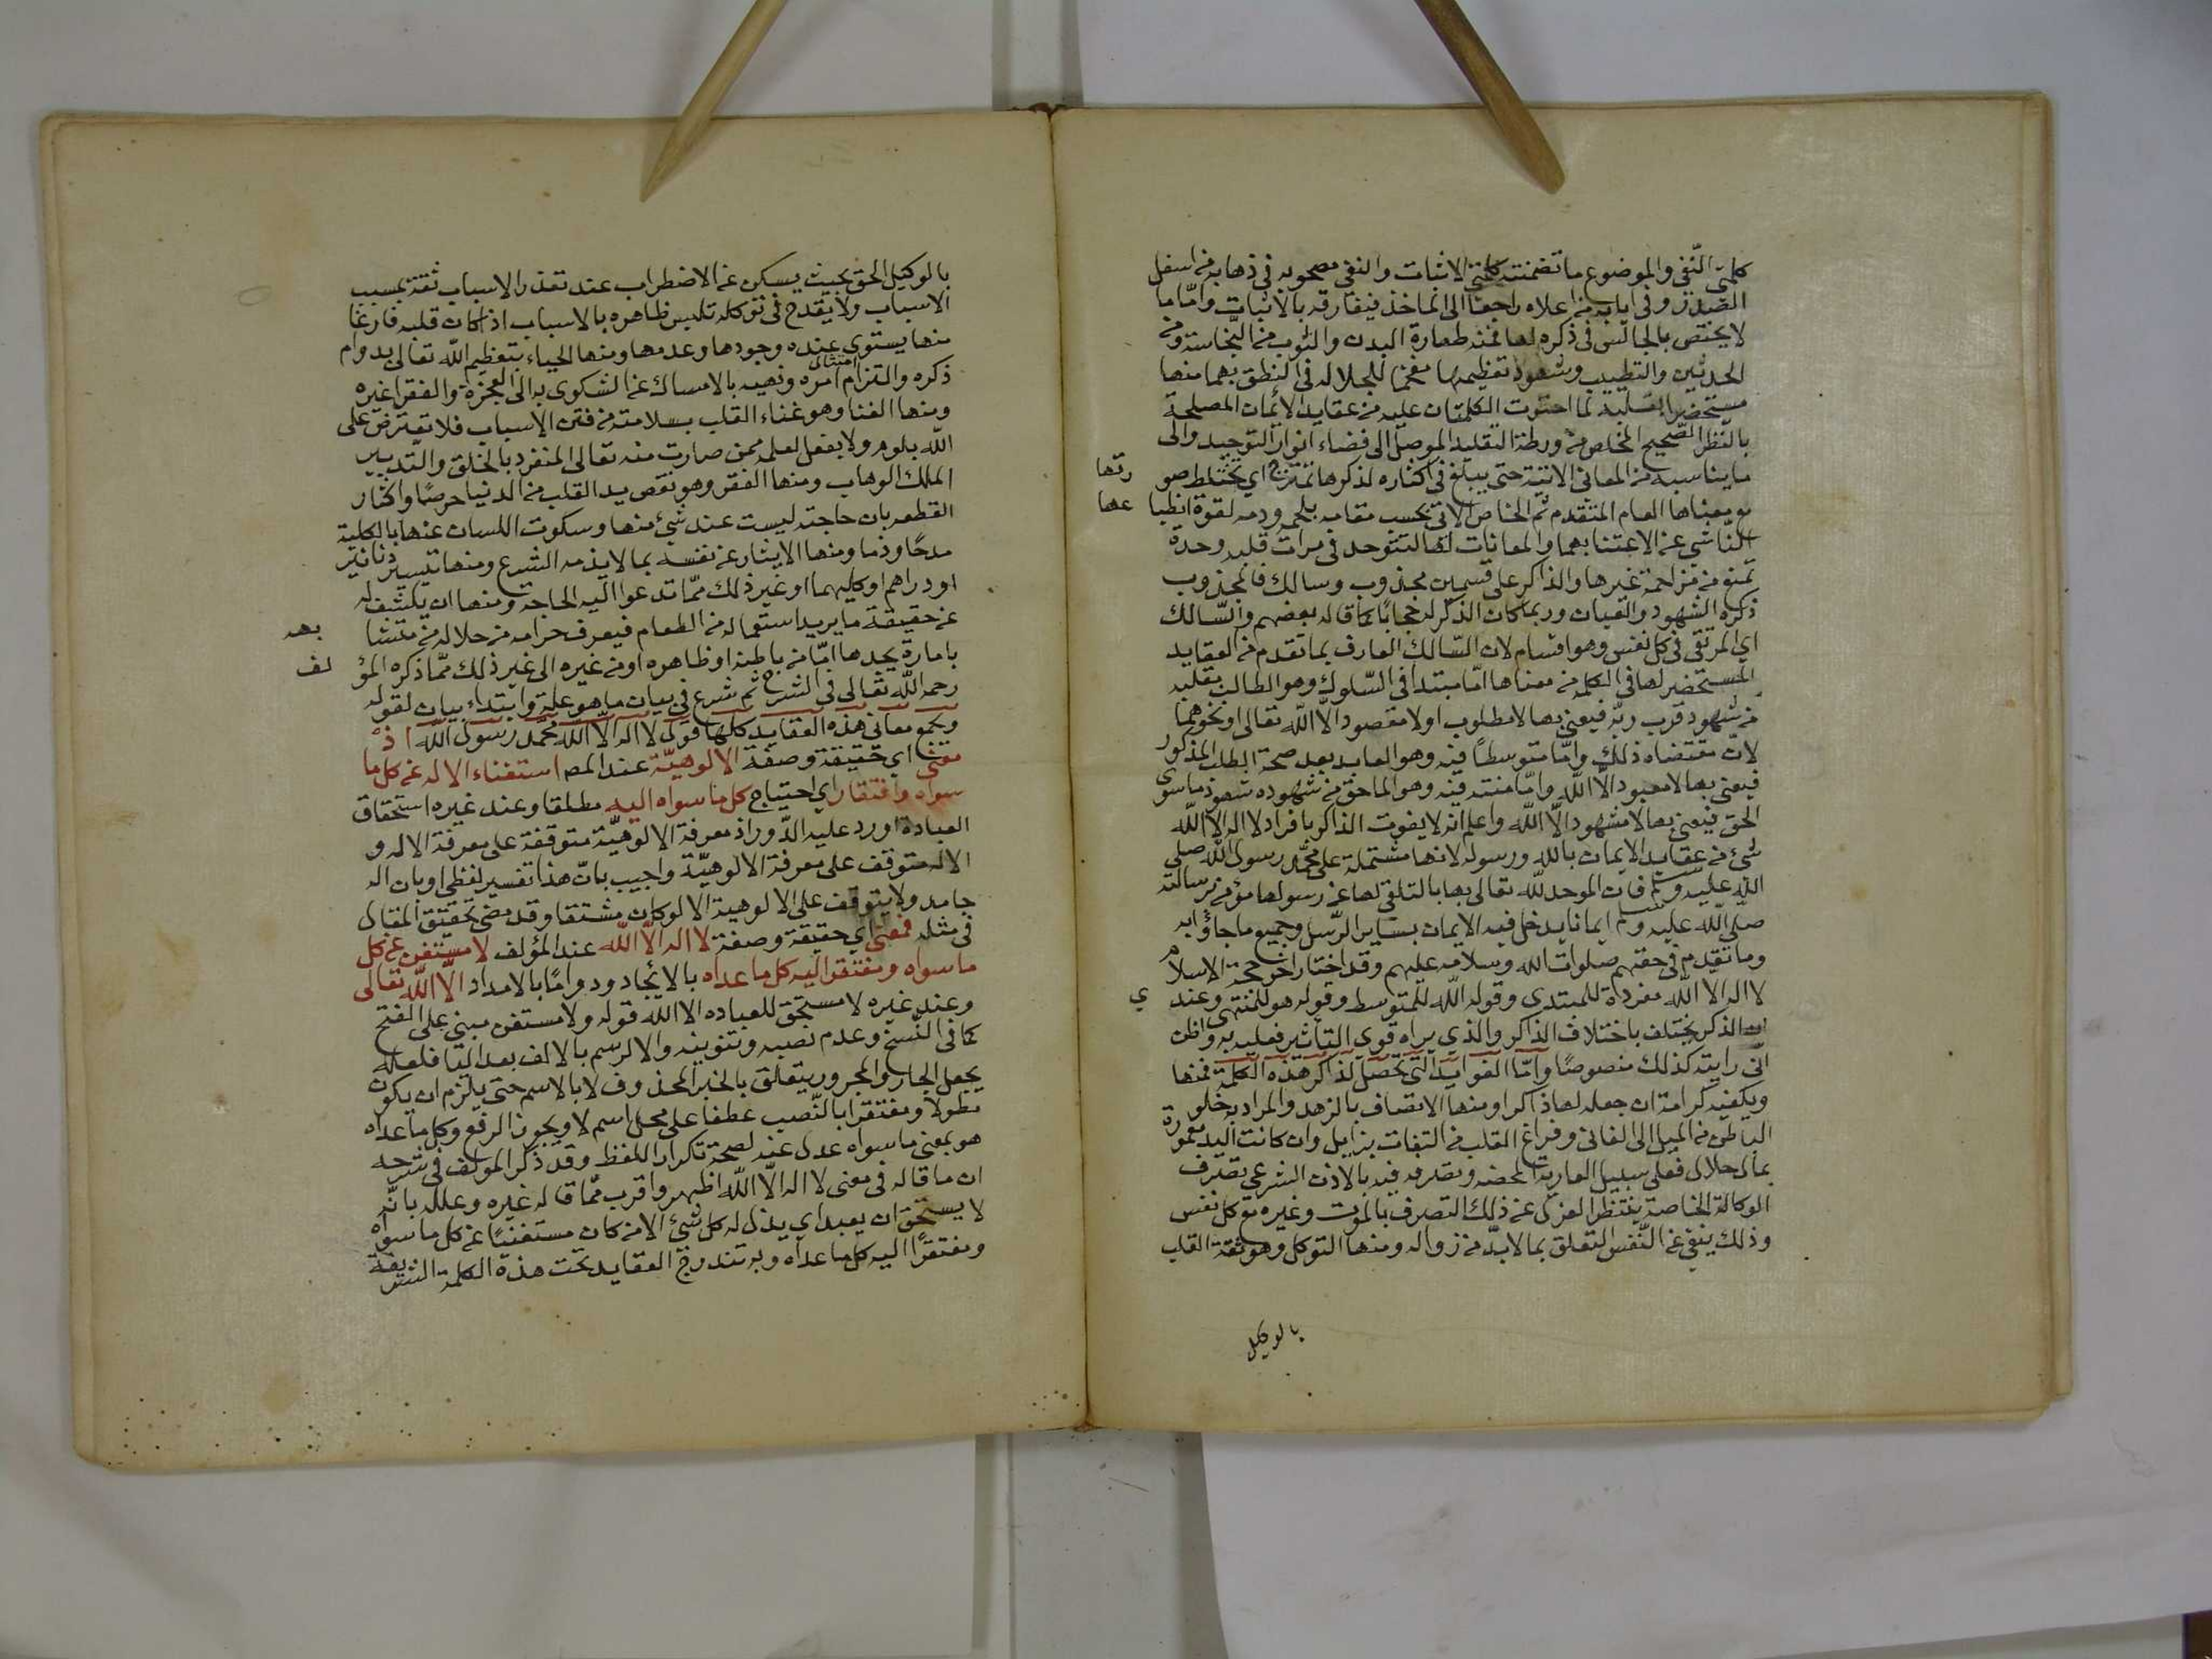 كلمتي النفي والموضوع ما تضمنته كلمتي الاثبات والنفي مصحوبه في ذهابه من اسفل
الصدر وفي ايابه من اعلاه راجعا الى المأخذ فيفارقه بالاثبات وامّا ما
لا يختص بالجالس في ذكره لها فمنه طهارة البدن والثوب من النجاسة ومن
الحدثين والتطييب وشهود تعظيمها مفخما للجلاله في النطق بهما منها
مستحضرا بقلبه لما احتوت الكلمتان عليه من عقايد الايمان المصلحة
بالنظر الصحيح المخلص من ورطة التقليد الموصل الى فضاء انوار التوحيد والى
ما يناسبه من المعاني الاتية حتى يبلغ في اكثاره لذكرها تمتزج اي تختلط صو رتها
مع معناها العام المتقدم ثم الخاص الاتي بحسب مقامه بلحمه ودمه لقوة انطبا عها
الناشي عن الاعتنا بهما والمعانات لها لتتوحد في مرات قلبه وحدة
تمنع من مزاحمة غيرها والذاكر على قسمين مجذوب وسالك فالمجذوب
ذكره الشهود والعيان وربما كان الذكر له حجابا كما قاله بعضهم والسّالك
اي المرتقي في كل نفس وهو اقسام لان السّالك العارف بما تقدم من العقايد
المستحضر لها في الكلمة من معناها امّا مبتدأ في السّلوك وهو الطالب بقلبه
من شهود قرب ربّه فيعني بها لا مطلوب او لا مقصود الّا الله تعالى او نحوهما
لانّ مقتضاه ذلك وامّا متوسطاً فيه وهو العابد بعد صحة الطلب المذكور
فيعني بها لا معبود الّا الله وامّا منته فيه وهو الماحق من شهوده شهود ما سوى
الحق فيعني بها لا مشهود الّا الله واعلم انه لا يفوت الذاكر بافراد لا اله الا الله
شئ من عقايد الايمان بالله ورسوله لانها مشتملة على محمّد رسول الله صلى
الله عليه وسلم فان الموحد لله تعالى بها بالتلقي لها عن رسولها مؤمن برسالته
صلّى الله عليه وسلم ايمانا يدخل فيه الايمان بساير الرّسل وجميع ما جاؤا به
وما تقدم في حقهم صلوات الله وسلامه عليهم وقد اختار اخو حجة الاسلام
لا اله الا الله مفردة للمبتدي وقوله الله للمتوسط وقوله هو للمنتهي وعند ي
ان الذكر يختلف باختلاف الذاكر والذي يراه قوي التأثير فعليه به واظن
انّي رايته كذلك منصوصًا وامّا الفوايد التي تحصل لذاكر هذه الكلمة فمنها
ويكفيه كرامة ان جعله لها ذاكرا ومنها الاتصاف بالزهد والمراد به خلو
الباطن من الميل الى الفاني وفراغ القلب من التفات بزايل وان كانت اليد معمورة
بمال حلال فعلى سبيل العارية المحضه وتصرفه فيه بالاذن الشرعي تصرف
الوكالة الخاصة ينتظر العزل عن ذلك التصرف بالموت وغيره مع كل نفس
وذلك ينفي عن النّفس التعلق بما لابدّ من زواله ومنها التوكل وهو ثقة القلب
بالوكيل
بالوكيل الحق بحيث يسكن عن الاضطراب عند تعذر الاسباب ثقة بمسبب
الاسباب ولا يقدح في توكله تلبس ظاهره بالاسباب اذا كان قلبه فارغا
منها يستوي عنده وجودها وعدمها ومنها الحياء بتعظيم الله تعالى بدوام
ذكره والتزام امتثال امره ونهيه بالامساك عن الشكوى به الى العجزة والفقرا غيره
ومنها الغنا وهو غناء القلب بسلامته من فتن الاسباب فلا تعترض على
الله بلو ولا بفعل لعلمه بمن صارت منه تعالى المنفرد بالخلق والتدبير
الملك الوهاب ومنها الفقر وهو نقص يد القلب من الدنيا حرصا واكثار
القطعه بان حاجته ليست عند شئ منها وسكوت اللسان عنها بالكلية
مدحًا وذما ومنها الايثار عن نفسه بما لا يذمه الشرع ومنها تيسير دنانير
او دراهم او كليهما او غير ذلك ممّا تدعوا اليه الحاجة ومنها ان يكشف له
عن حقيقة ما يريد استعماله من الطعام فيعرف حرامه من حلاله من متشا بهه
بامارة يجدها امّا من باطنه او ظاهره او من غيره الى غير ذلك ممّا ذكره المؤ لف
رحمه الله تعالى في الشرح ثم شرع في بيان ما هو علة وابتداء بيان لقوله
ويجمع معاني هذه العقايد كلها قول لا اله الا الله محمد رسول الله اذ
معنى اي حقيقة وصفة الالوهيّة عند المص استغناء الاله عن كل ما
سواه وافتقار اي احتياج كل ما سواه اليه مطلقا وعند غيره استحقاق
العبادة اورد عليه الدّور اذ معرفة الالوهيّة متوقفة على معرفة الاله و
الاله متوقف على معرفة الالوهيّة واجيب بانّ هذا تفسير لفظي او بان اله
جامد ولا يتوقف على الالوهية الا لو كان مشتقا وقد مضى تحقيق المقال
في مثله فمعنى اي حقيقة وصفة لا اله الّا الله عند المؤلف لا مستغن عن كل
ما سواه ومفتقرا اليه كل ما عداه بالايجاد ودواما بالامداد الّا الله تعالى
وعند غيره لا مستحق للعباده الا الله قوله ولا مستغن مبني على الفتح
كما في النّسخ وعدم نصبه وتنوينه والا لرسم بالالف بعد اليا فلعله
يجعل الجار والمجرور يتعلق بالخبر المحذوف لا بالاسم حتى يلزم ان يكون
مطولا ومفتقرا بالنّصب عطفا على محل اسم لا ويجوز الرفع وكل ما عداه
هو بمعنى ما سواه عدل عنه لصحة تكرار اللفظ وقد ذكر المؤلف في شرحه
ان ما قاله في معنى لا اله الّا الله اظهر واقرب ممّا قاله غيره وعلله بانّه
لا يستحق ان يعبد اي يذل له كل شئ الا من كان مستغنيًا عن كل ما سواه
ومفتقرًا اليه كل ما عداه وبه تندرج العقايد تحت هذه الكلمة الشريفة